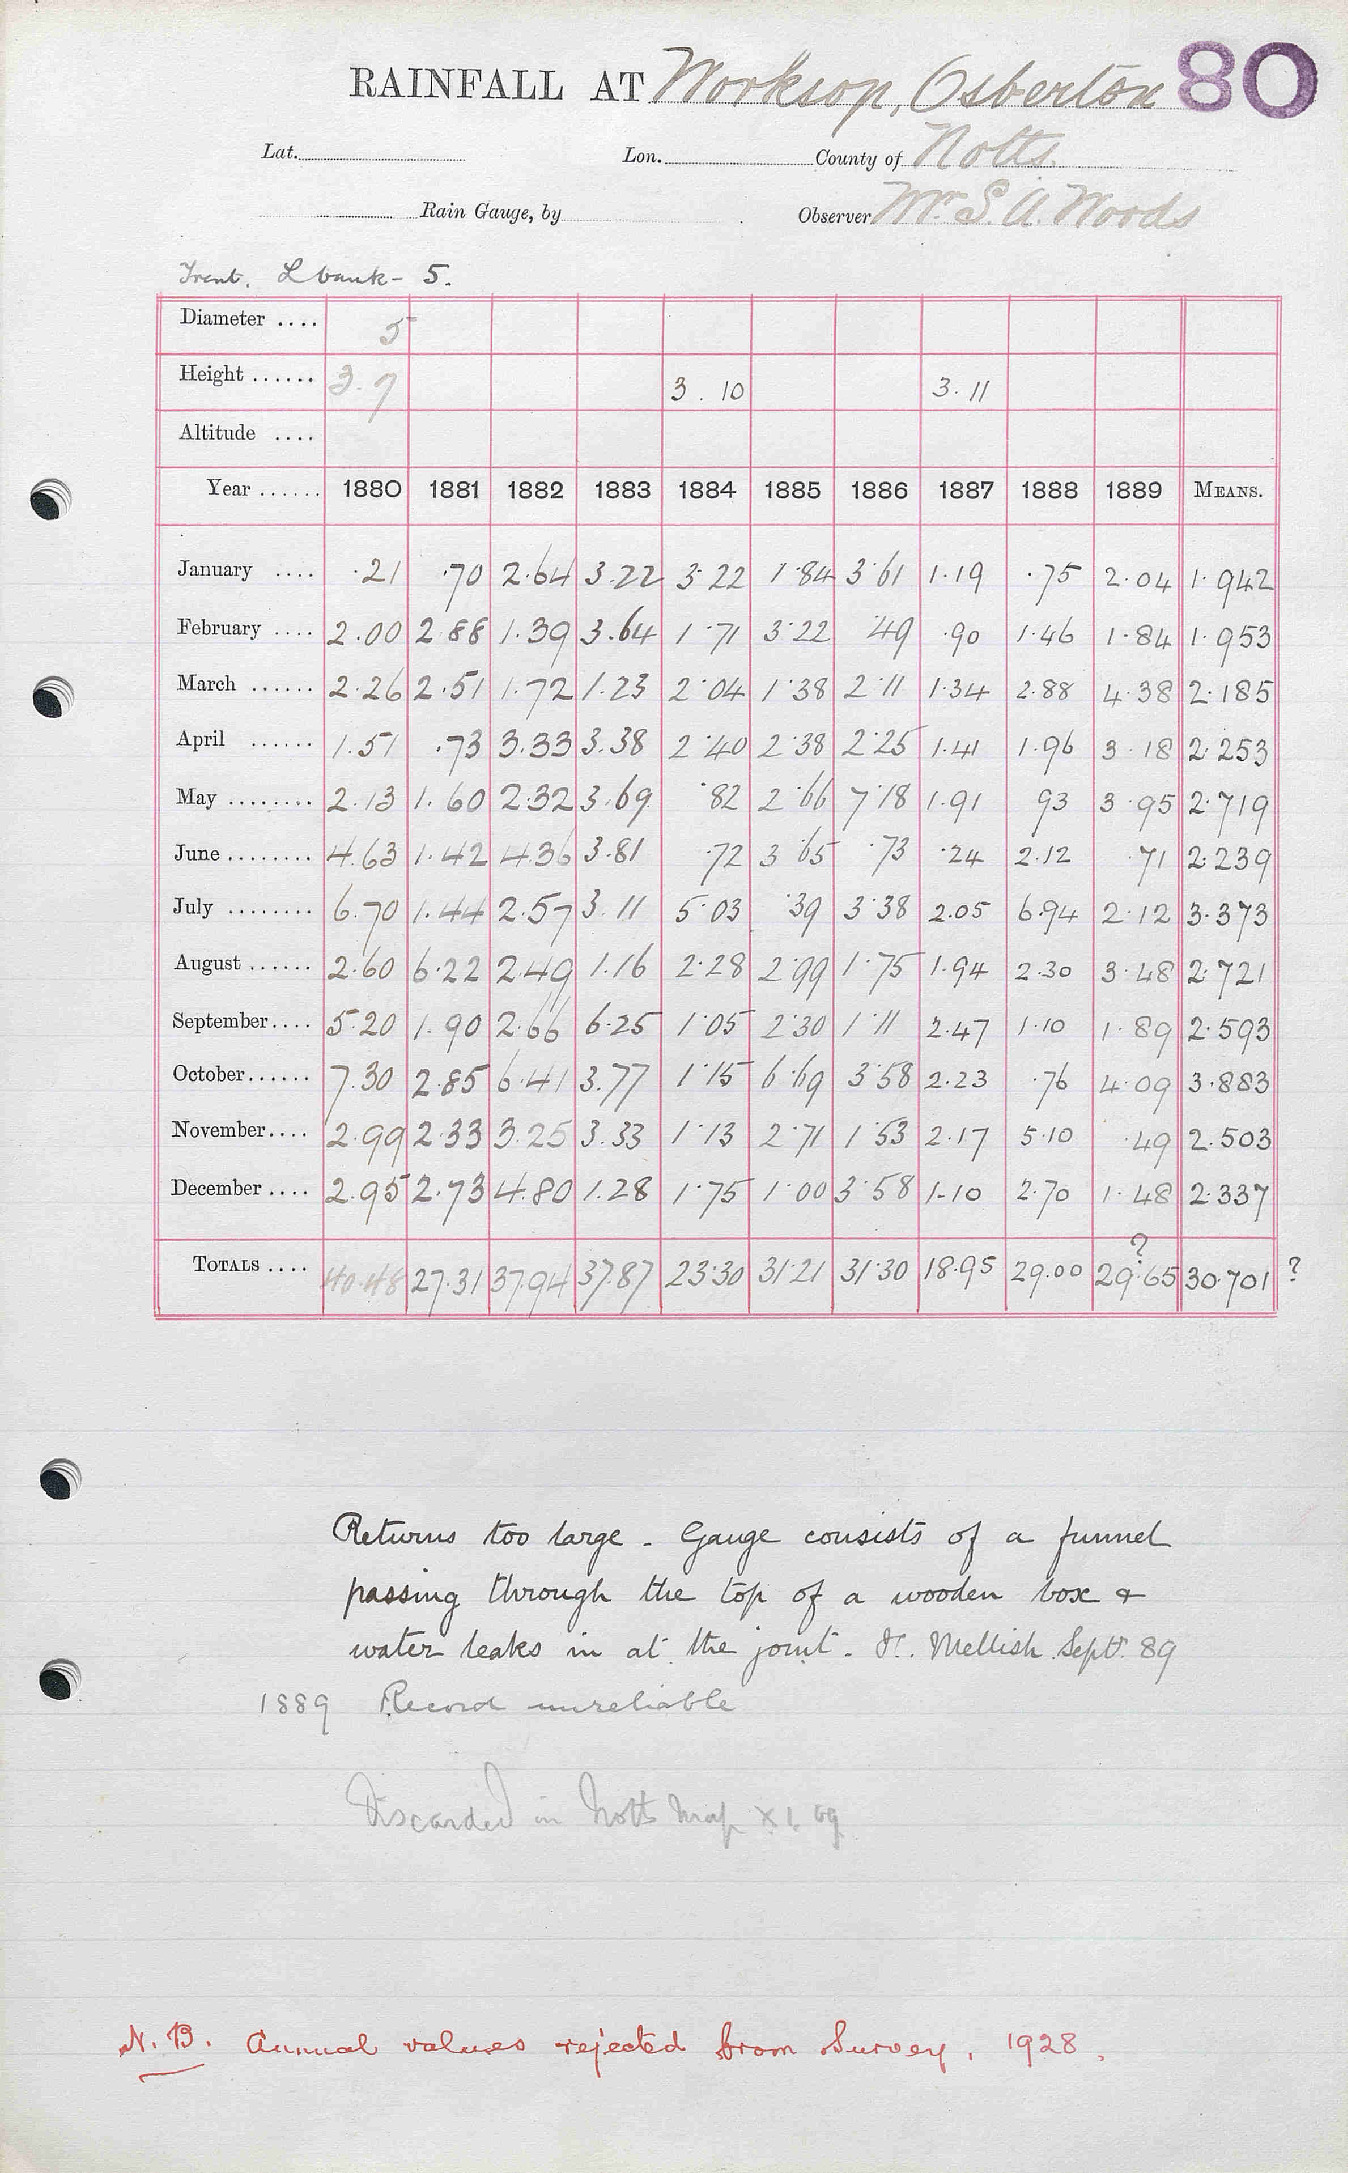 RAINFALL AT Worksop, Osberton 80
Lat. Lon. County of Notts.
Rain Gauge, by Observer Mr. S. A. Woods
Trent. L bank - 5.
Diameter .... 5
Height ...... 3.7 3.10 3.11
Altitude ....
Year ...... 1880 1881 1882 1883 1884 1885 1886 1887 1888 1889 MEANS.
January .... .21 .70 2.64 3.22 3.22 1.84 3.61 1.19 .75 2.04 1.942
February .... 2.00 2.88 1.39 3.64 1.71 3.22 .49 .90 1.46 1.84 1.953
March ...... 2.26 2.51 1.72 1.23 2.04 1.38 2.11 1.34 2.88 4.38 2.185
April ...... 1.51 .73 3.33 3.38 2.40 2.38 2.25 1.41 1.96 3.18 2.253
May ........ 2.13 1.60 2.32 3.69 .82 2.66 7.18 1.91 93 3.95 2.719
June ........ 4.63 1.42 4.36 3.81 .72 3.65 .73 .24 2.12 .71 2.239
July ........ 6.70 1.44 2.57 3.11 5.03 .39 3.38 2.05 6.94 2.12 3.373
August ...... 2.60 6.22 2.49 1.16 2.28 2.99 1.75 1.94 2.30 3.48 2.721
September.... 5.20 1.90 2.66 6.25 1.05 2.30 1.11 2.47 1.10 1.89 2.593
October...... 7.30 2.85 6.41 3.77 1.15 6.69 3.58 2.23 .76 4.09 3.883
November.... 2.99 2.33 3.25 3.33 1.13 2.71 1.53 2.17 5.10 .49 2.503
December .... 2.95 2.73 4.80 1.28 1.75 1.00 3.58 1.10 2.70 1.48 2.337
?
TOTALS .... 40.48 27.31 37.94 37.87 23.30 31.21 31.30 18.95 29.00 29.65 30.701 ?
Returns too large - Gauge consists of a funnel
passing through the top of a wooden box &
water leaks in at the joint. Mellish Sept. 89
1889 Record unreliable
Discarded in Notts Map
N.B. Annual values rejected from Survey, 1928.